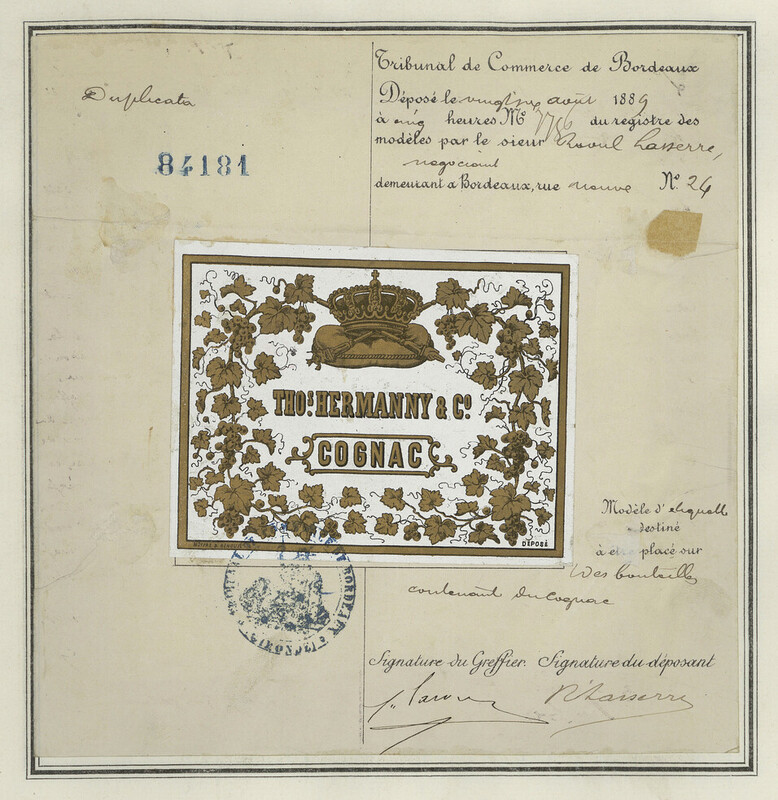 Duplicata
84181
Tribunal de Commerce de Bordeaux
Déposé le vingt six août 1889
à cinq heures Nº 7756 du registre des
modèles par le sieur Raoul Lasserre,
négociant
demeurant à Bordeaux, rue neuve Nº 24
THOS HERMANNY & Cº
COGNAC
DÉPOSÉ
Modèle d'étiquette
destiné
à être placé sur
des bouteilles
contenant du cognac
BORDEAUX
(GIRONDE)
Signature du Greffier. Signature du déposant
R Lasserre